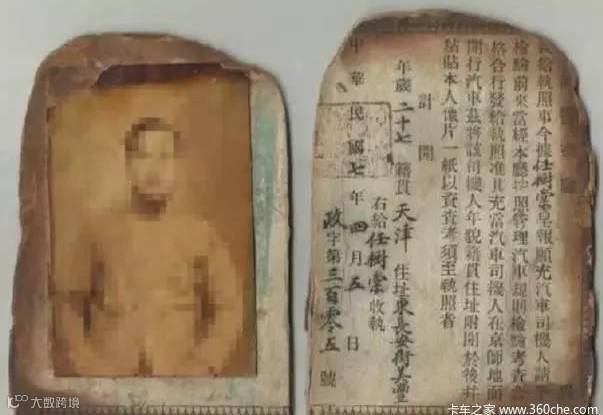 給執照事今據任樹棠呈報願充汽車司機人請
檢驗前來當經本廳按照管理汽車規則檢驗考查
格合行發給執照准其充當汽車司機人在京師地面
開行汽車茲將該司機人年貌籍貫住址附開於後並
黏貼本人像片一紙以資查考須至執照者
計開
年歲二十七 籍貫天津 住址東長安街美豐
右給任樹棠收執
中華民國七年四月五日
政字第三百零五號
大数跨境
卡车之家 www.360che.com